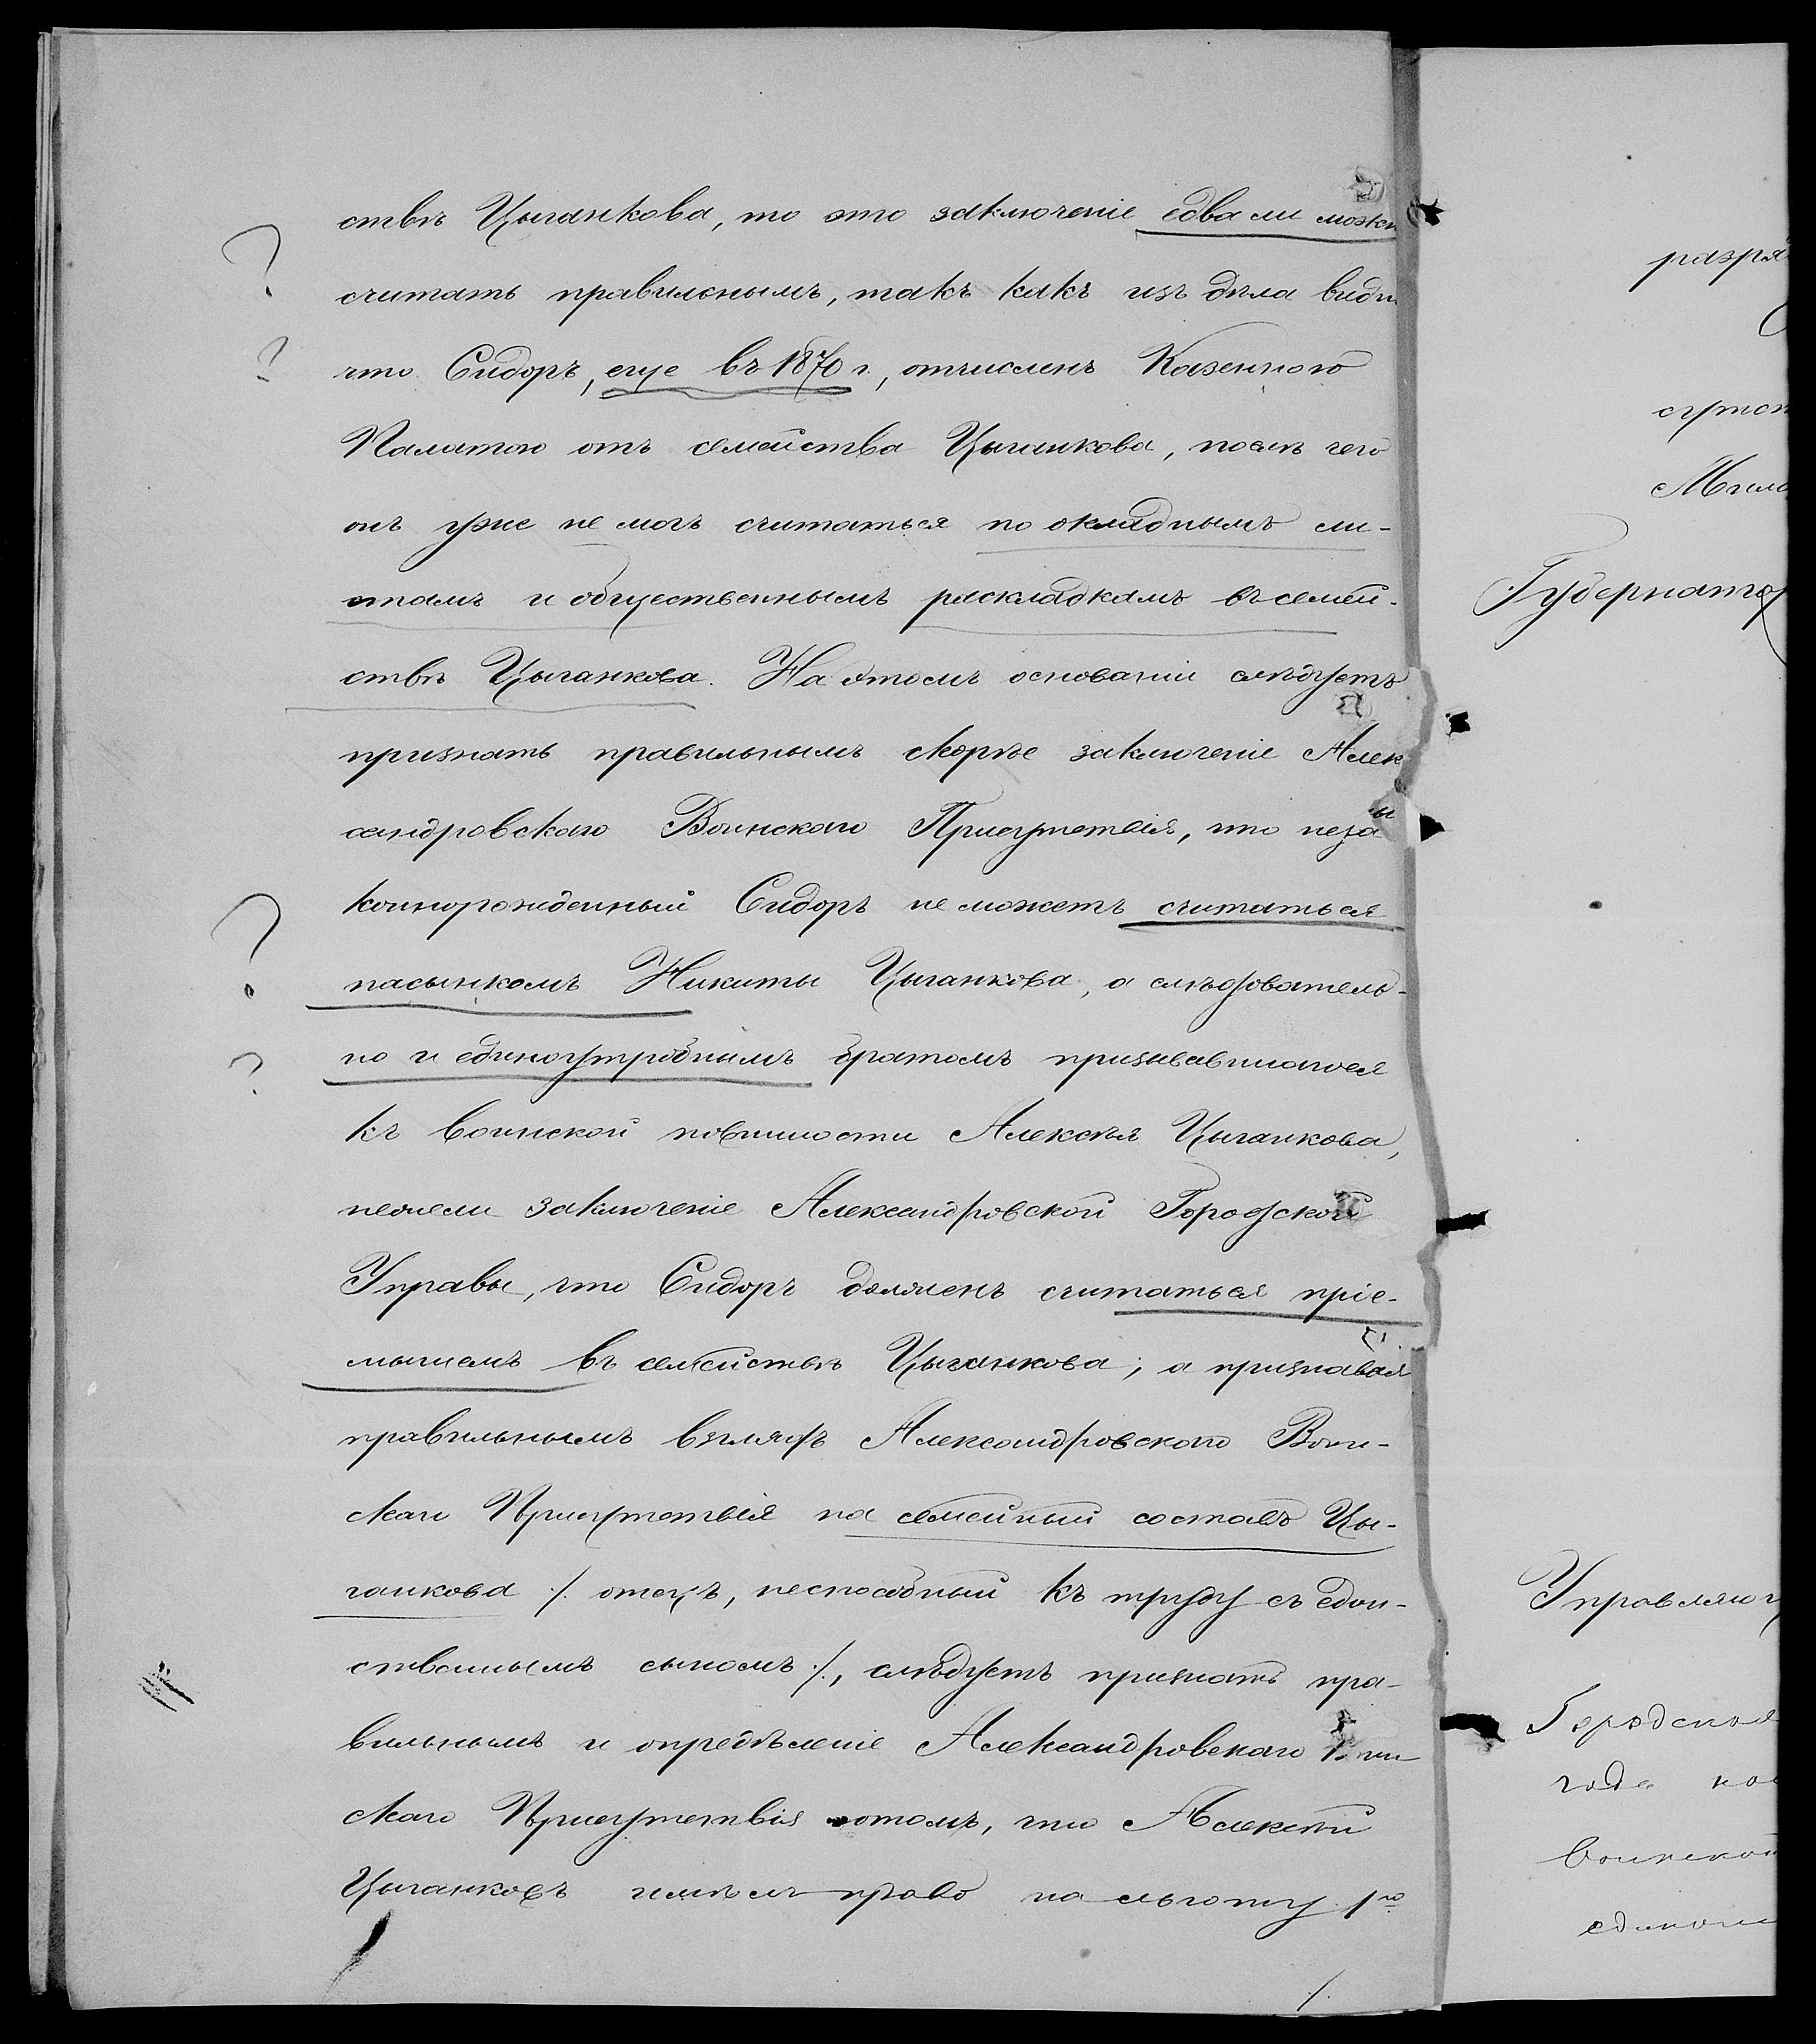 ствѣ Цыганкова, то это заключеніе едва ли можн
считать правильнымъ, такъ какъ изъ дѣла видн
что Сидоръ, еще въ 1870 г., отчисленъ Казенною
Палатою отъ семейства Цыганкова, послѣ чего
онъ уже не могъ считаться по окладнымъ ли-
стамъ и общественнымъ раскладкамъ въ семей-
ствѣ Цыганкова. На этомъ основаніи слѣдуетъ
признать правильнымъ скорѣе заключеніе Алек
сандровскаго Воинскаго Присутствія, что неза
коннорожденный Сидоръ не можетъ считаться
пасынкомъ Никиты Цыганкова, а слѣдователь-
но и единоутробнымъ братомъ призывавшагося
къ воинской повинности Алексѣя Цыганкова,
нежели заключеніе Александровской Городской
Управы, что Сидоръ долженъ считаться пріе-
мышемъ въ семействѣ Цыганкова; а признавая
правильнымъ взглядъ Александровскаго Воин-
скаго Присутствія на семейный составъ Цы-
ганкова /. отецъ, неспособный къ труду съ един-
ственнымъ сыномъ /., слѣдуетъ признать пра-
вильнымъ и опредѣленіе Александровскаго Воин
скаго Присутствія о томъ, что Алексѣй
Цыганковъ имѣетъ право на льготу 1го
/.
разря
сутст
Мило
Губернатор
Управляющ
Городская
года
воинской